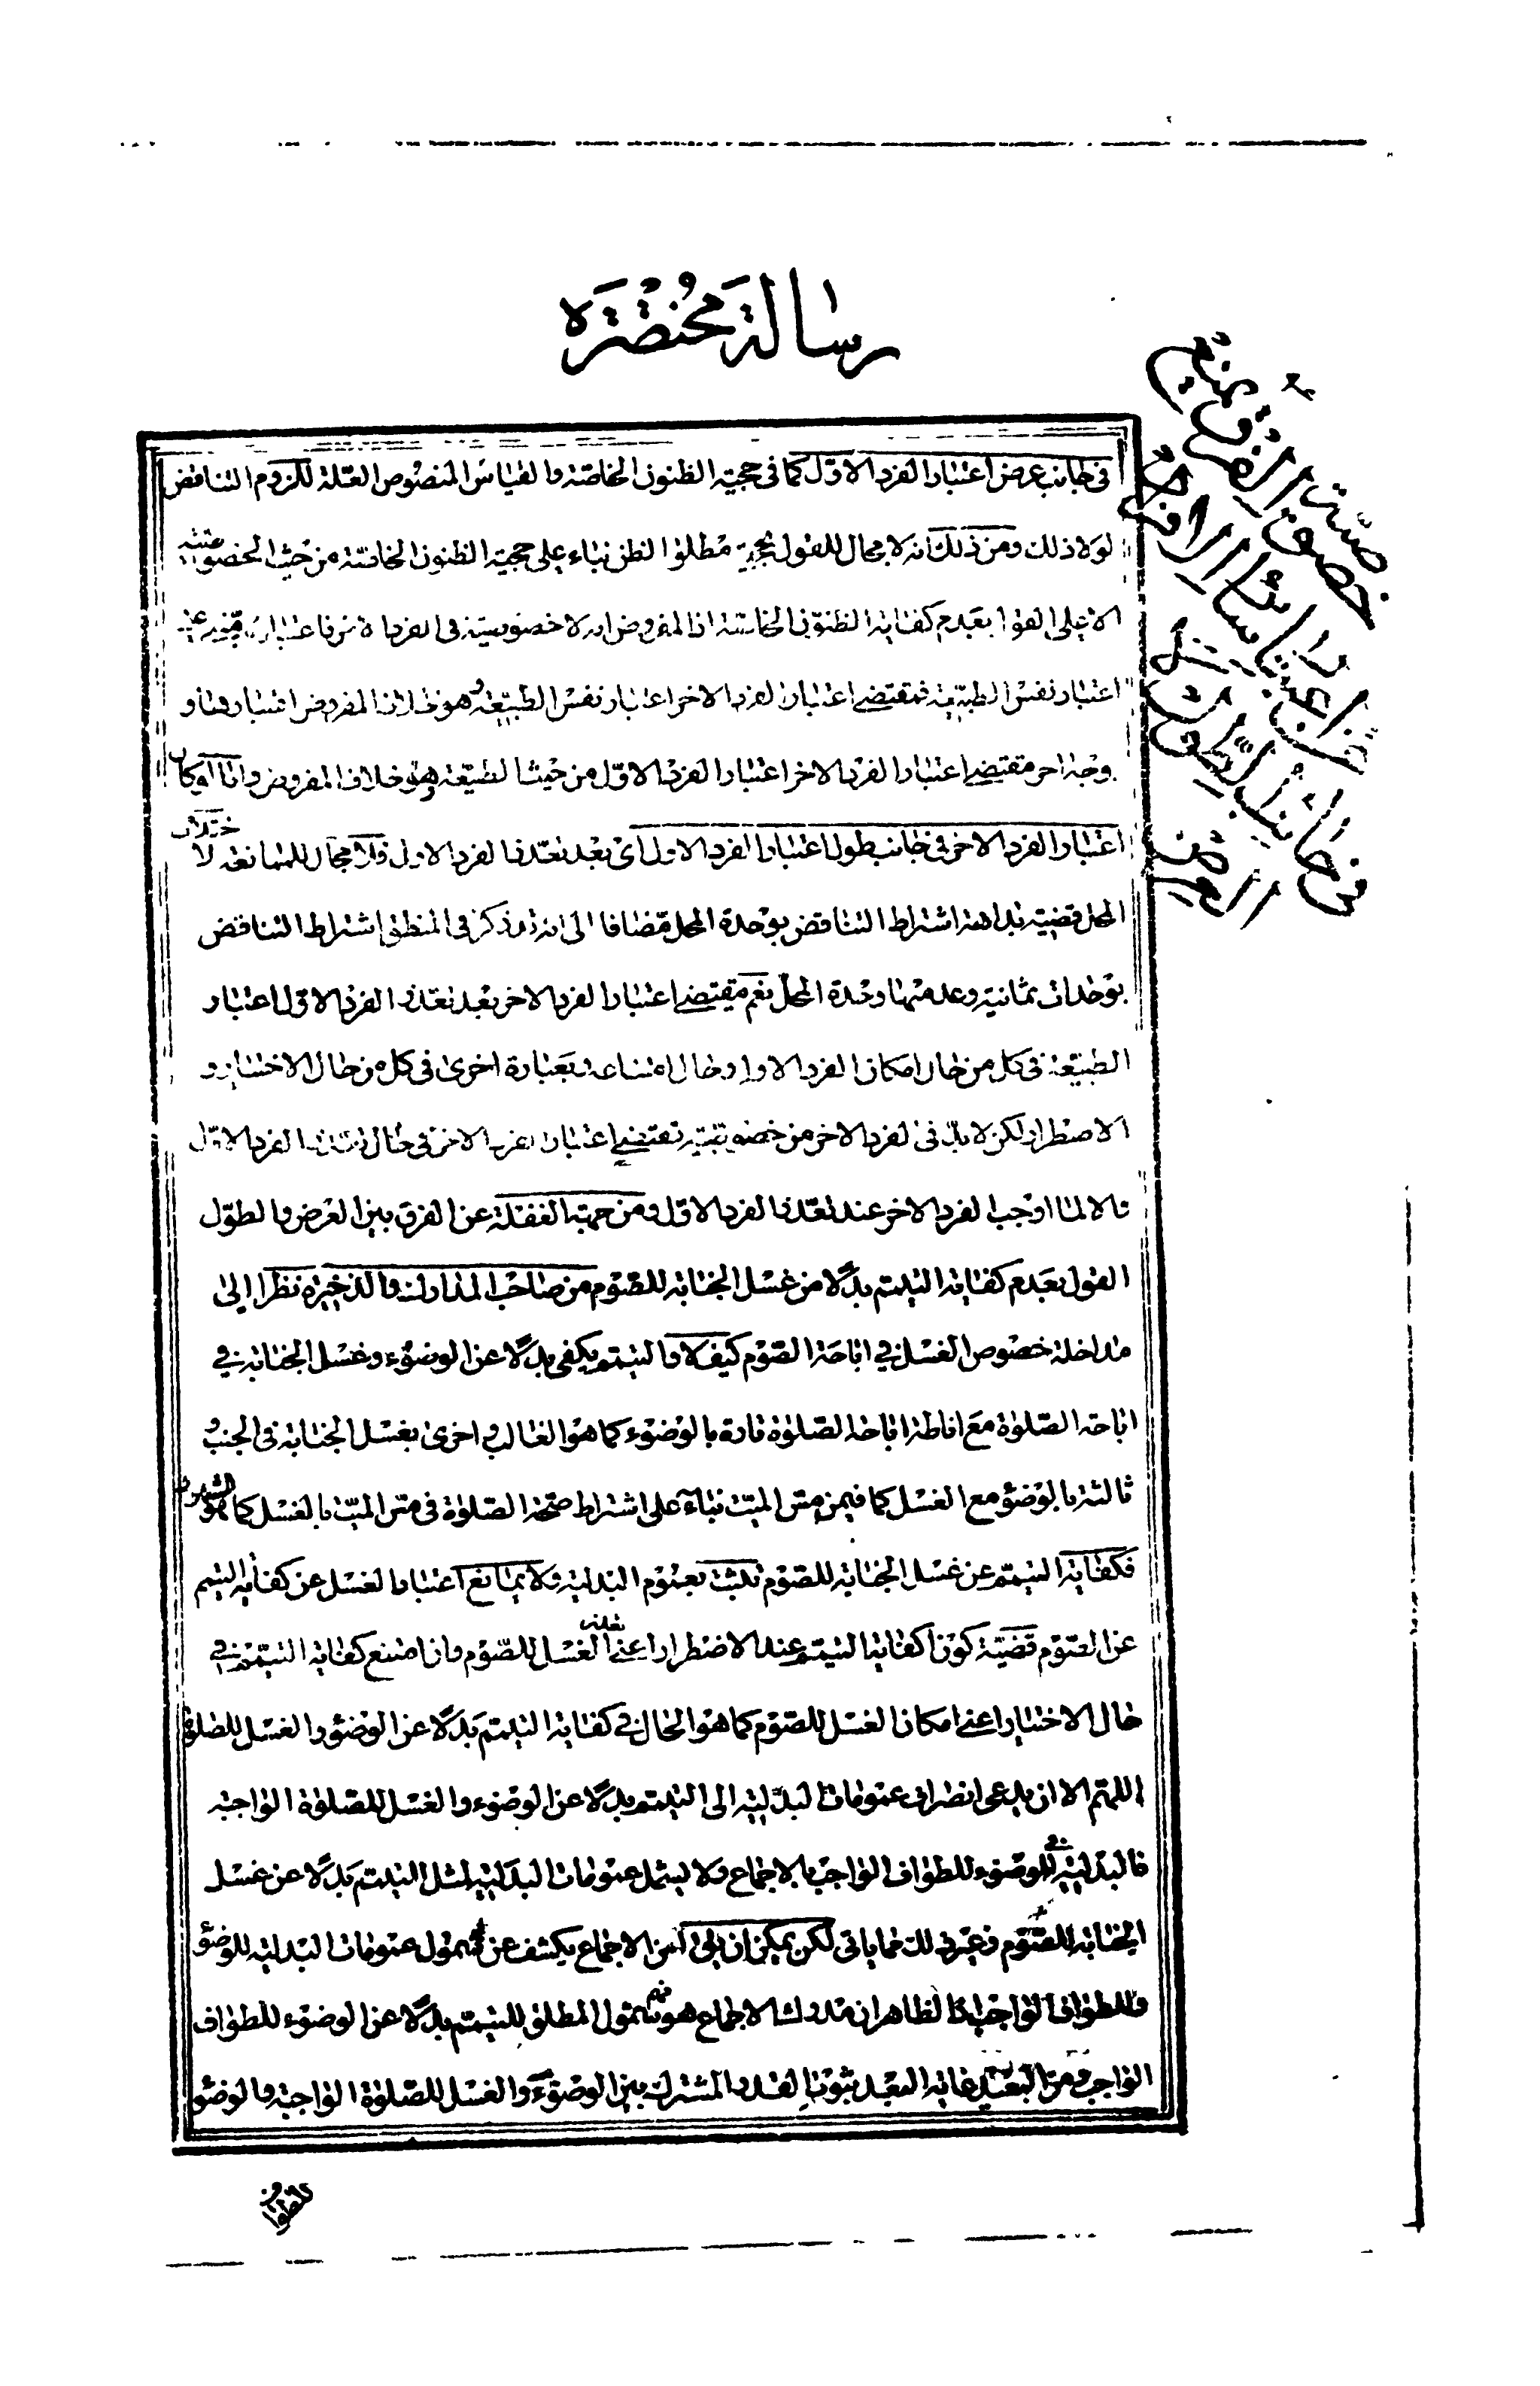 رسالة مختصرة
في جانب عرض اعتبار الفرد الاوّل كما في حجية الظنون الخاصّة والقياس المنصوص العلّة للزوم التناقض
لولا ذلك ومن ذلك انه لا مجال للقول بحجية مطلق الظن بناء على حجية الظنون الخاصّة من حيث الخصوصيّة
الا على القول بعدم كفاية الظنون الخاصّة اذ المفروض انه لا خصوصيّة في الفرد
اعتبار نفس الطبيعة فمقتضى اعتبار الفرد الاخر اعتبار نفس الطبيعة وهو خلاف المفروض
وجه اخر مقتضى اعتبار الفرد الاخر اعتبار الفرد الاوّل من حيث الطبيعة وهو خلاف المفروض وامّا لو كان
اعتبار الفرد الاخر في جانب طول اعتبار الفرد الاول اى بعد تعذر الفرد الاول فلا مجال للممانعة لاختلاف
المحل قضية بداهة اشتراط التناقض بوحدة المحل مضافا الى انه قد ذكر في المنطق اشتراط التناقض
بوحدات ثمانية وعد منها وحدة المحلّ نعم مقتضى اعتبار الفرد الاخر بعد تعذر الفرد الاوّل اعتبار
الطبيعة في كل من حال امكان الفرد الاول وحال امتناعه وبعبارة اخرى في كل من حال الاختيار و
الاضطرار لكن لا بدّ في الفرد الاخر من خصوصيّة تقتضي اعتبار الفرد الاخر في حال تعذر الفرد الاوّل
والا لما اوجب الفرد الاخر عند تعذر الفرد الاوّل ومن جهة الغفلة عن الفرق بين العرض والطول
القول بعدم كفاية التيمّم بدلا من غسل الجنابة للصّوم من صاحب المدارك والذخيرة نظرا الى
مداخلة خصوص الغسل في اباحة الصّوم كيف لا والتيمّم يكفي بدلا عن الوضوء وغسل الجنابة في
اباحة الصّلوة مع اناطة اباحة الصّلوة تارة بالوضوء كما هو الغالب واخرى بغسل الجنابة في الجنب و
ثالثة بالوضوء مع الغسل كما فيمن مسّ الميّت بناء على اشتراط صحّة الصّلوة في مسّ الميّت بالغسل كما هو المشهور
فكفاية التيمّم عن غسل الجنابة للصّوم تثبت بعموم البدليّة ولا يمانع اعتبار الغسل عن كفاية التيمم
عن الصّوم قضيّة كون كفاية التيمّم عند الاضطرار اعني تعذر الغسل للصّوم وان امتنع كفاية التيمّم في
حال الاختيار اعني امكان الغسل للصّوم كما هو الحال في كفاية التيمّم بدلا عن الوضوء والغسل للصّلوة
اللهمّ الا ان يدعى انصراف عمومات البدليّة الى التيمّم بدلا عن الوضوء والغسل للصّلوة الواجبة
فالبدليّة في الوضوء للطواف الواجب بالاجماع ولا يشمل عمومات البدليّة لمثل التيمّم بدلا عن غسل
الجنابة للصّوم وغير ذلك مما ياتي لكن يمكن ان يقال ان الاجماع يكشف عن شمول عمومات البدليّة للوضوء
وللطواف الواجب اذ الظاهر ان مدرك الاجماع هو فهم شمول المطلق للتيمّم بدلا عن الوضوء للطواف
الواجب ومن البعيد غاية البعد ثبوت القدر المشترك بين الوضوء والغسل للصّلوة الواجبة والوضوء
للطواف